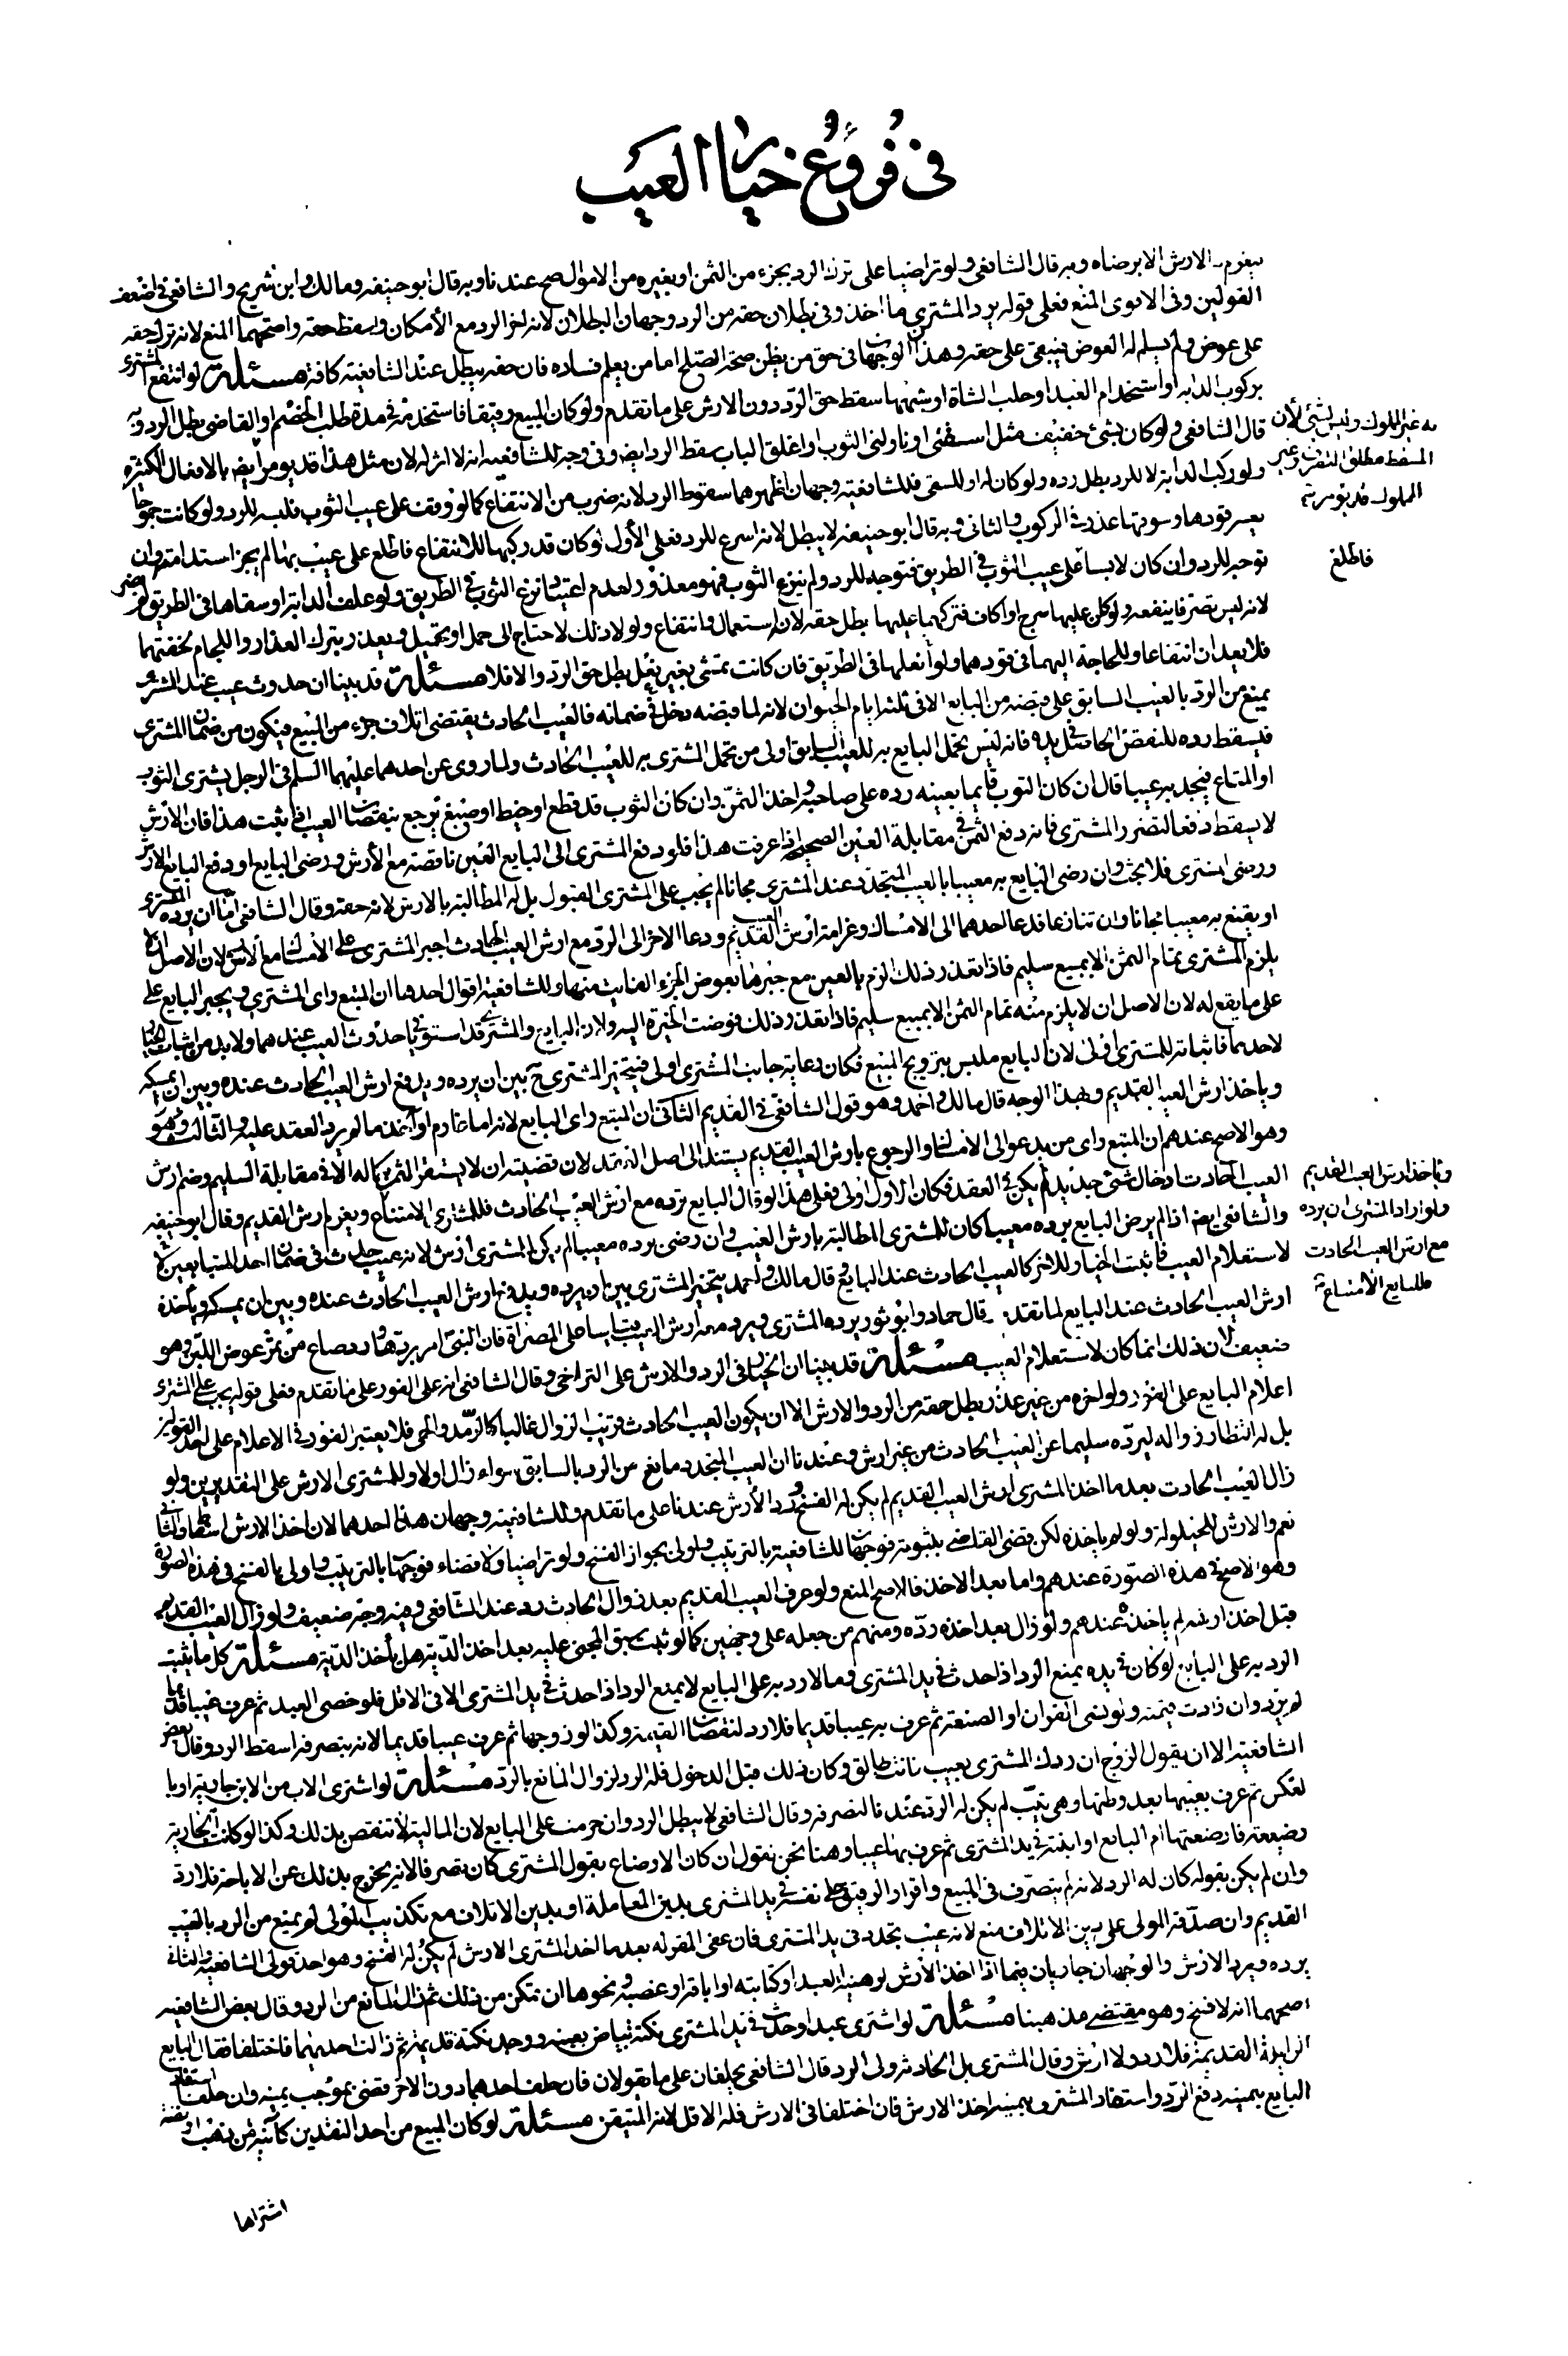 في فروع خيار العيب
يغرم الارش الا برضاه وبه قال الشافعي ولو تراضيا على ترك الرد بجزء من الثمن او بغيره من الاموال صح عندنا وبه قال ابو حنيفه ومالك وابن شريح والشافعي في اضعف
القولين وفى الاقوى المنع فعلى قوله يرد المشترى ما اخذ وفى بطلان حقه من الرد وجهان البطلان لانه اخر الرد مع الامكان واسقط حقه واصحهما المنع لانه ترك حقه
على عوض ولم يسلم له العوض فيبقى على حقه وهذان الوجهان في حق من يظن صحة الصلح اما من يعلم فساده فان حقه يبطل عند الشافعية كافة مسئلة لو انتفع المشترى
بركوب الدابه او استخدام العبد او حلب الشاة او شبهها سقط حق الرد دون الارش على ما تقدم ولو كان المبيع رقيقا فاستخدمه في مدة طلب الخصم او القاضى بطل الرد وبه
قال الشافعي ولو كان بشئ خفيف مثل اسقنى او ناولنى الثوب او اغلق الباب سقط الرد ايضا وفى وجه للشافعيه انه لا اثر له لان مثل هذا قد يؤمر به
غير المملوك وليس بشئ لأن
المسقط مطلق التصرف وغير
المملوك قد يؤمر به
ايضا بالافعال الكثيره
ولو ركب الدابة لا للرد بطل رده ولو كان له او للسقى فللشافعية وجهان اظهرهما سقوط الرد لانه ضرب من الانتفاع كما لو وقف على عيب الثوب فلبسه للرد ولو كانت جموحا
يعسر قودها وسوقها عذر في الركوب والثانى وبه قال ابو حنيفه لا يبطل لانه اسرع للرد فعلى الأول لو كان قد ركبها للانتفاع فاطلع على عيب بها لم يجز استدامته وان
توجه للرد وان كان لابسا
فاطلع
على عيب الثوب في الطريق فتوجه للرد ولم ينزع الثوب فهو معذور لعدم اعتياد نزع الثوب في الطريق ولو علف الدابة او سقاها في الطريق لم يضر
لانه ليس تصرفا ينفعه ولو كان عليها سرج او اكاف فتركهما عليها بطل حقه لان استعمال وانتفاع ولولا ذلك لاحتاج الى حمل او تحميل ويعذر بترك العذار واللجام لخفتهما
فلا يعد ان انتفاعا وللحاجة اليهما في قودهما ولو انعلها في الطريق فان كانت تمشى بغير نعل بطل حق الرد والا فلا مسئلة قد بينا ان حدوث عيب عند المشترى
يمنع من الرد بالعيب السابق على قبضه من البايع الا في ثلثة ايام الحيوان لانه لما قبضه دخل في ضمانه فالعيب الحادث يقتضى اتلاف جزء من المبيع فيكون من ضمان المشترى
فيسقط رده للنقص الحاصل في يده فانه ليس تحمل البايع به للعيب السابق اولى من تحمل المشترى به للعيب الحادث ولما روى عن احدهما عليهما السلم في الرجل يشترى الثوب
او المتاع فيجد به عيبا قال ان كان الثوب قايما بعينه رده على صاحبه واخذ الثمن وان كان الثوب قد قطع او خيط او صبغ يرجع بنقصان العيب اذا ثبت هذا فان الارش
لا يسقط دفعا لتضرر المشترى فانه دفع الثمن في مقابلة العين الصحيحة اذا عرفت هذا فلو دفع المشترى الى البايع العين ناقصة مع الأرش ورضى البايع او دفع البايع الارش
ورضى المشترى فلا بحث وان رضى البايع به معيبا بالعيب المتجدد عند المشترى مجانا لم يجب على المشترى القبول بل له المطالبة بالارش لانه حقه وقال الشافعي اما ان يرده المشترى
او يقنع به معيبا مجانا وان تنازعا فدعا احدهما الى الامساك وغرامة ارش العيب القديم ودعا الاخر الى الرد مع ارش العيب الحادث اجبر المشترى على الامساك مع الارش لان الاصل ان لا
يلزم المشترى تمام الثمن الا بمبيع سليم فاذا تعذر ذلك الزم بالعين مع جبرها بعوض الجزء الفايت منها وللشافعية اقوال احدها ان المتبع راى المشترى ويجبر البايع على
على ما يقع له لان الاصل ان لا يلزم منه تمام الثمن الا بمبيع سليم فاذا تعذر ذلك فوضت الخيرة اليه ولان البايع والمشترى قد استوفيا حدوث العيب عندهما ولا بد من اثبات الخيار
لاحدهما فاثباته للمشترى اولى لان البايع ملبس بترويج المبيع فكان رعاية جانب المشترى اولى فيتخير المشترى ح بين ان يرده ويدفع ارش العيب الحادث عنده وبين ان يمسكه
وياخذ ارش العيب القديم وبهذا الوجه قال مالك واحمد وهو قول الشافعي في القديم الثانى ان المتبع راى البايع لانه اما غارم او آخذ ما لم يرد العقد عليه والثالث وهو
وهو الاصح عندهم ان المتبع راى من يدعو الى الامساك والرجوع بارش العيب القديم يستند الى اصل العقد لان قضيته ان لا يستقر الثمن بكماله الا في مقابلة السليم وضم ارش
العيب الحادث ادخال شئ جديد لم يكن في العقد فكان الاول اولى فعلى هذا لو قال البايع ترده مع ارش العيب الحادث فللمشترى الامتناع ويغرم ارش القديم
وياخذ ارش العيب القديم
ولو اراد المشترى ان يرده
مع ارش العيب الحادث
فللبايع الامتناع
وقال ابو حنيفه
والشافعي ايضا اذا لم يرض البايع برده معيبا كان للمشترى المطالبة بارش العيب وان رضى برده معيبا لم يكن للمشترى ارش لانه عيب حدث في ضمان احد المتبايعين لا
لاستعلام العيب فاثبت الخيار للاخر كالعيب الحادث عند البايع وقال مالك واحمد يتخير المشترى بين ان يرده ويدفع ارش العيب الحادث عنده وبين ان يمسكه وياخذ
ارش العيب الحادث عند البايع لما تقدم وقال حماد وابو ثور يرده المشترى ويرد معه ارش العيب قياسا على المصراة فان النبى امر بردها ورد صاع من تمر عوض اللبن وهو
ضعيف لان ذلك انما كان لاستعلام العيب مسئلة قد بينا ان الخيار في الرد والارش على التراخى وقال الشافعي انه على الفور على ما تقدم فعلى قوله يجب على المشترى
اعلام البايع على الفور ولو اخره من غير عذر بطل حقه من الرد والارش الا ان يكون العيب الحادث قريب الزوال غالبا كالرمد والحمى فلا يعتبر الفور في الاعلام على احد القولين
بل له انتظار زواله ليرده سليما عن العيب الحادث من غير ارش وعندنا ان العيب المتجدد مانع من الرد بالسابق سواء زال اولا وللمشترى الارش على التقديرين ولو
زال العيب الحادث بعد ما اخذ المشترى ارش العيب القديم لم يكن له الفسخ ورد الأرش عندنا على ما تقدم وللشافعية وجهان هذا احدهما لان اخذ الارش اسقاط والثانى
نعم والارش للحيلولة ولو لم ياخذه لكن قضى القاضى بثبوته فوجهان للشافعية بالترتيب واولى بجواز الفسخ ولو تراضيا ولا قضاء فوجهان بالترتيب واولى بالفسخ في هذه الصورة
وهو الاصح في هذه الصورة عندهم واما بعد الاخذ فالاصح المنع ولو عرف العيب القديم بعد زوال الحادث رد عند الشافعي وفيه وجه ضعيف ولو زال العيب القديم
قبل اخذ ارشه لم ياخذه عندهم ولو زال بعد اخذه رده ومنهم من جعله على وجهين كما لو نبت سن المجنى عليه بعد اخذ الدية هل يأخذ الدية مسئلة كل ما يثبت
الرد به على البايع لو كان في يده يمنع الرد اذا حدث في يد المشترى وما لا رد به على البايع لا يمنع الرد اذا حدث في يد المشترى الا في الاقل فلو خصى العبد ثم عرف عيبا قديما
لم يرد وان زادت قيمته ولو نسى القران او الصنعة ثم عرف به عيبا قديما فلا رد لنقصان القيمة وكذا لو زوجها ثم عرف عيبا قديما لانه بتصرفه اسقط الرد وقال بعض
الشافعية الا ان يقول الزوج ان ردك المشترى بعيب فانت طالق وكان ذلك قبل الدخول فله الرد لزوال المانع بالرد مسئلة لو اشترى الاب من الابن جارية او با
لعكس ثم عرف بعيبها بعد وطئها وهى ثيب لم يكن له الرد عندنا للتصرف وقال الشافعي لا يبطل الرد وان حرمت على البايع لان المالية لا تنقص بذلك وكذا لو كانت الجارية
رضيعة فارضعتها ام البايع او ابنته في يد المشترى ثم عرف بها عيبا وهنا نحن نقول ان كان الارضاع بقول المشترى كان تصرفا لانه يخرج بذلك عن الاباحة فلا رد
وان لم يكن بقوله كان له الرد لانه لم يتصرف في المبيع واقرار الرقيق على نفسه في يد المشترى بدين المعاملة او بدين الاتلاف مع تكذيب المولى لم يمنع من الرد بالعيب
القديم وان صدقه المولى على دين الاتلاف منع لانه عيب تجدد في يد المشترى فان عفى المقر له بعد ما اخذ المشترى الارش لم يكن له الفسخ وهو احد قولى الشافعية والثانى
يرده ويرد الارش والوجهان جاريان فيما اذا اخذ الأرش لرهنية العبد او كتابته او اباقه او غصبه ونحوها ان تمكن من ذلك ثم زال المانع من الرد وقال بعض الشافعيه
اصحهما انه لا فسخ وهو مقتضى مذهبنا مسئلة لو اشترى عبدا وحدث في يد المشترى نكتة بياض بعينه ووجد نكتة قديمة ثم زالت احديهما فاختلفا فقال البايع
الزايلة القديمة فلا رد ولا ارش وقال المشترى بل الحادثة ولى الرد قال الشافعي يحلفان على ما يقولان فان حلف احدهما دون الاخر قضى بموجب يمينه وان حلفا استفاد
البايع بيمينه دفع الرد واستفاد المشترى بيمينه اخذ الارش فان اختلفا في الارش فله الاقل لانه المتيقن مسئلة لو كان المبيع من احد النقدين كآنية من ذهب او فضة
اشتراها